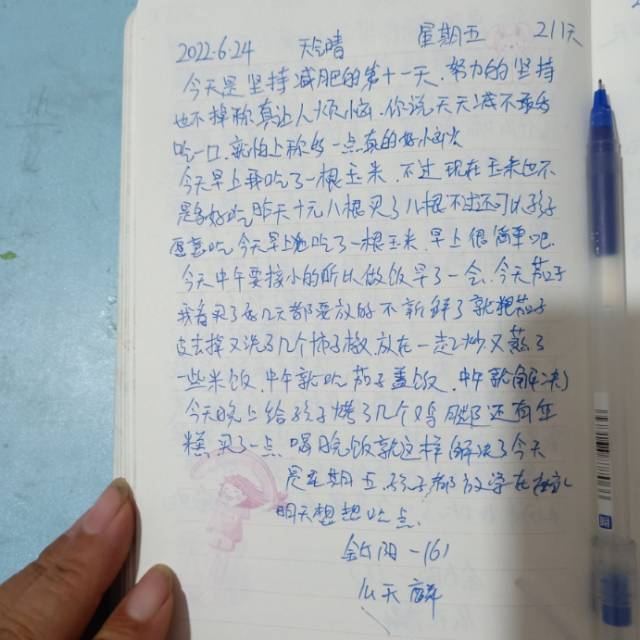 2022.6.24 天气晴 星期五 211天
今天是坚持减肥的第十一天.努力的坚持
也不掉称真让人烦恼.你说天天
吃一口.就怕上称多一点真的好
今天早上我吃了一根玉米.不过现在玉米也不
是多好吃昨天十元八根买了八根不过还可以孩子
愿意吃.今天早上也吃了一根玉米.早上很简单吧.
今天中午要接小的所以做饭早了一会.今天茄子
我看买了有几天都要放的不新鲜了就把茄子
皮去掉又洗了几个辣椒.放在一起炒又蒸了
一些米饭.中午就吃茄子盖饭.中午就解决了
今天晚上给孩子烤了几个鸡腿还有年
糕.买了一点.喝晚饭就这样解决了今天
是星期五.孩子都放学在
明天想想吃点.
阳-161
天